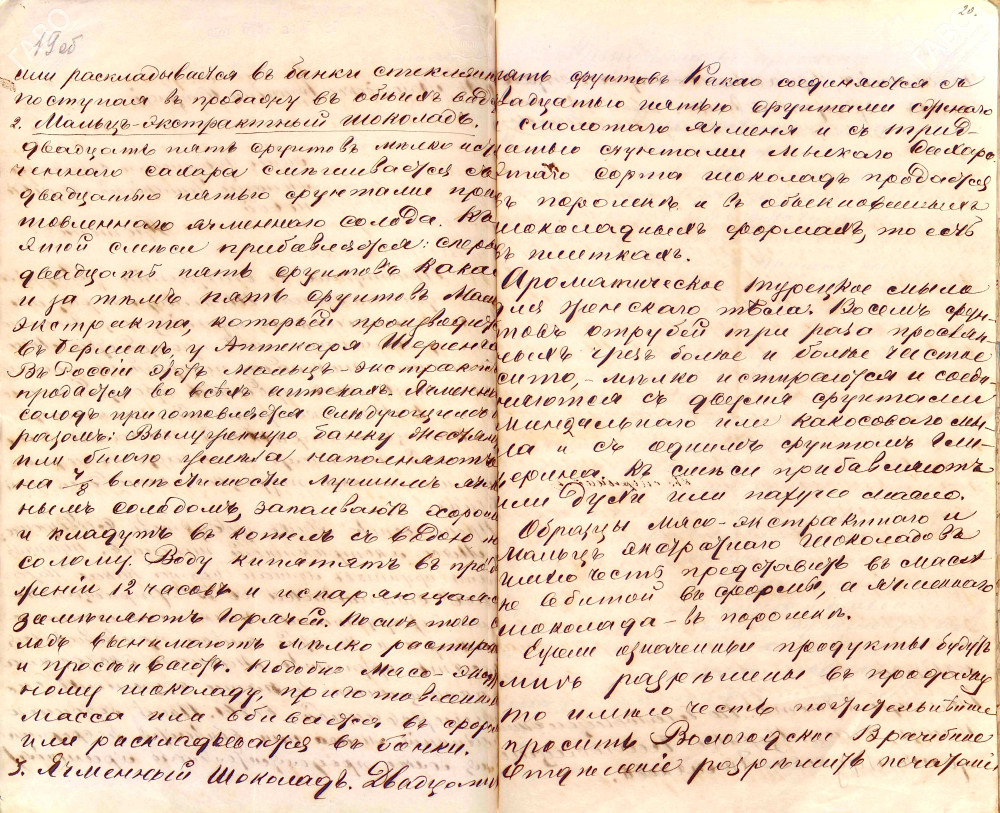 19 об
или раскладывается въ банки стеклян
поступая въ продажу въ обоихъ вид
2. Мальцъ-экстрактный шоколадъ.
Двадцать пять фунтовъ мѣлко ис
ченнаго сахара смѣшивается съ
двадцатью пятью фунтами приго
товленнаго ячменнаго солода. Къ
этой смѣси прибавляется: сперва
двадцать пять фунтовъ Какао
и за тѣмъ пять фунтовъ Маль
экстракта, который производится
въ Берлинѣ, у Аптекаря Шеринга
Въ Россіи этотъ мальцъ-экстрактъ
продается во всѣхъ аптекахъ. Ячменный
солодъ приготовляется слѣдующимъ об
разомъ: Вылуженную банку жестян
или бѣлаго желѣза наполняютъ
на 7/8 вмѣстимости лучшимъ ячмен
нымъ солодомъ, запаиваютъ хорошо
и кладутъ въ котелъ съ водою и
солому. Воду кипятятъ въ продол
женіи 12 часовъ и испаряющуюся
замѣняютъ горячей. Послѣ того со
лодъ вынимаютъ мѣлко растираютъ
и просѣиваютъ. Подобно Мясо-экстракт
ному шоколаду, приготовленная
масса или вбивается въ формы
или раскладывается въ банки.
3. Ячменный Шоколадъ. Двадцать
20.
пять фунтовъ Какао соединяются съ
двадцатью пятью фунтами
смолотаго ячменя и съ трид-
цатью фунтами мѣлкаго Сахара
Этаго сорта шоколадъ продается
въ порошкѣ и въ обыкновенныхъ
шоколадныхъ формахъ, то есть
въ плиткахъ.
Ароматическое турецкое мыло
для женскаго тѣла. Восемь фун-
товъ отрубей три раза просѣян-
ныхъ чрезъ болѣе и болѣе частое
сито, - мѣлко истираются и соеди
няются съ двумя фунтами
миндальнаго или какосоваго мы
ла и съ однимъ фунтомъ Гли
церина. Къ смѣси прибавляютъ
или Духи или пахучее масло.
Образцы мясо-экстрактнаго и
Мальцъ экстрактнаго шоколадовъ
имѣю честь представить въ массѣ
не вбитой въ формы, а ячменнаго
шоколада - въ порошкѣ.
Если означенные продукты будутъ
мнѣ разрѣшены въ продажу
то имѣю честь почтительнѣйше
просить Вологодское Врачебное
Отдѣленіе разрѣшить печатані